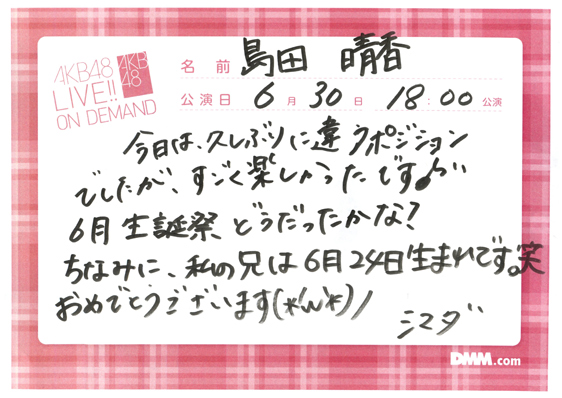 AKB48
LIVE!!
ON DEMAND
AKB
48
名前 島田 晴香
公演日 6月30日 18:00公演
今日は、久しぶりに違うポジション
でしたが、すごく楽しかったです♪
6月生誕祭どうだったかな?
ちなみに、私の兄は6月24日生まれです。笑
おめでとうございます(*'ω'*)ノ
シマダ
DMM.com